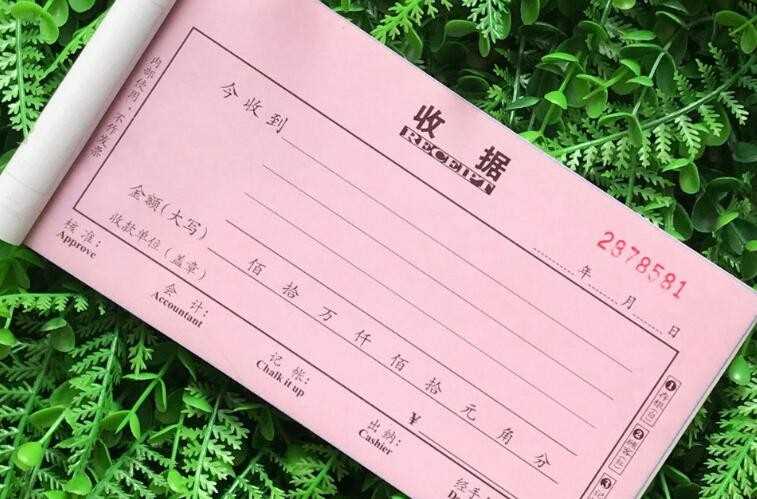 收据
RECEIPT
2878581
年 月 日
内部使用,不作发票
今收到
金额(大写) 佰拾万仟佰拾元角分
收款单位(盖章) ¥
核准:
Approve
会计:
Accountant
记帐:
Chalk it up
出纳:
Cashier
经手
①存根(白)
②顾客(红)
③